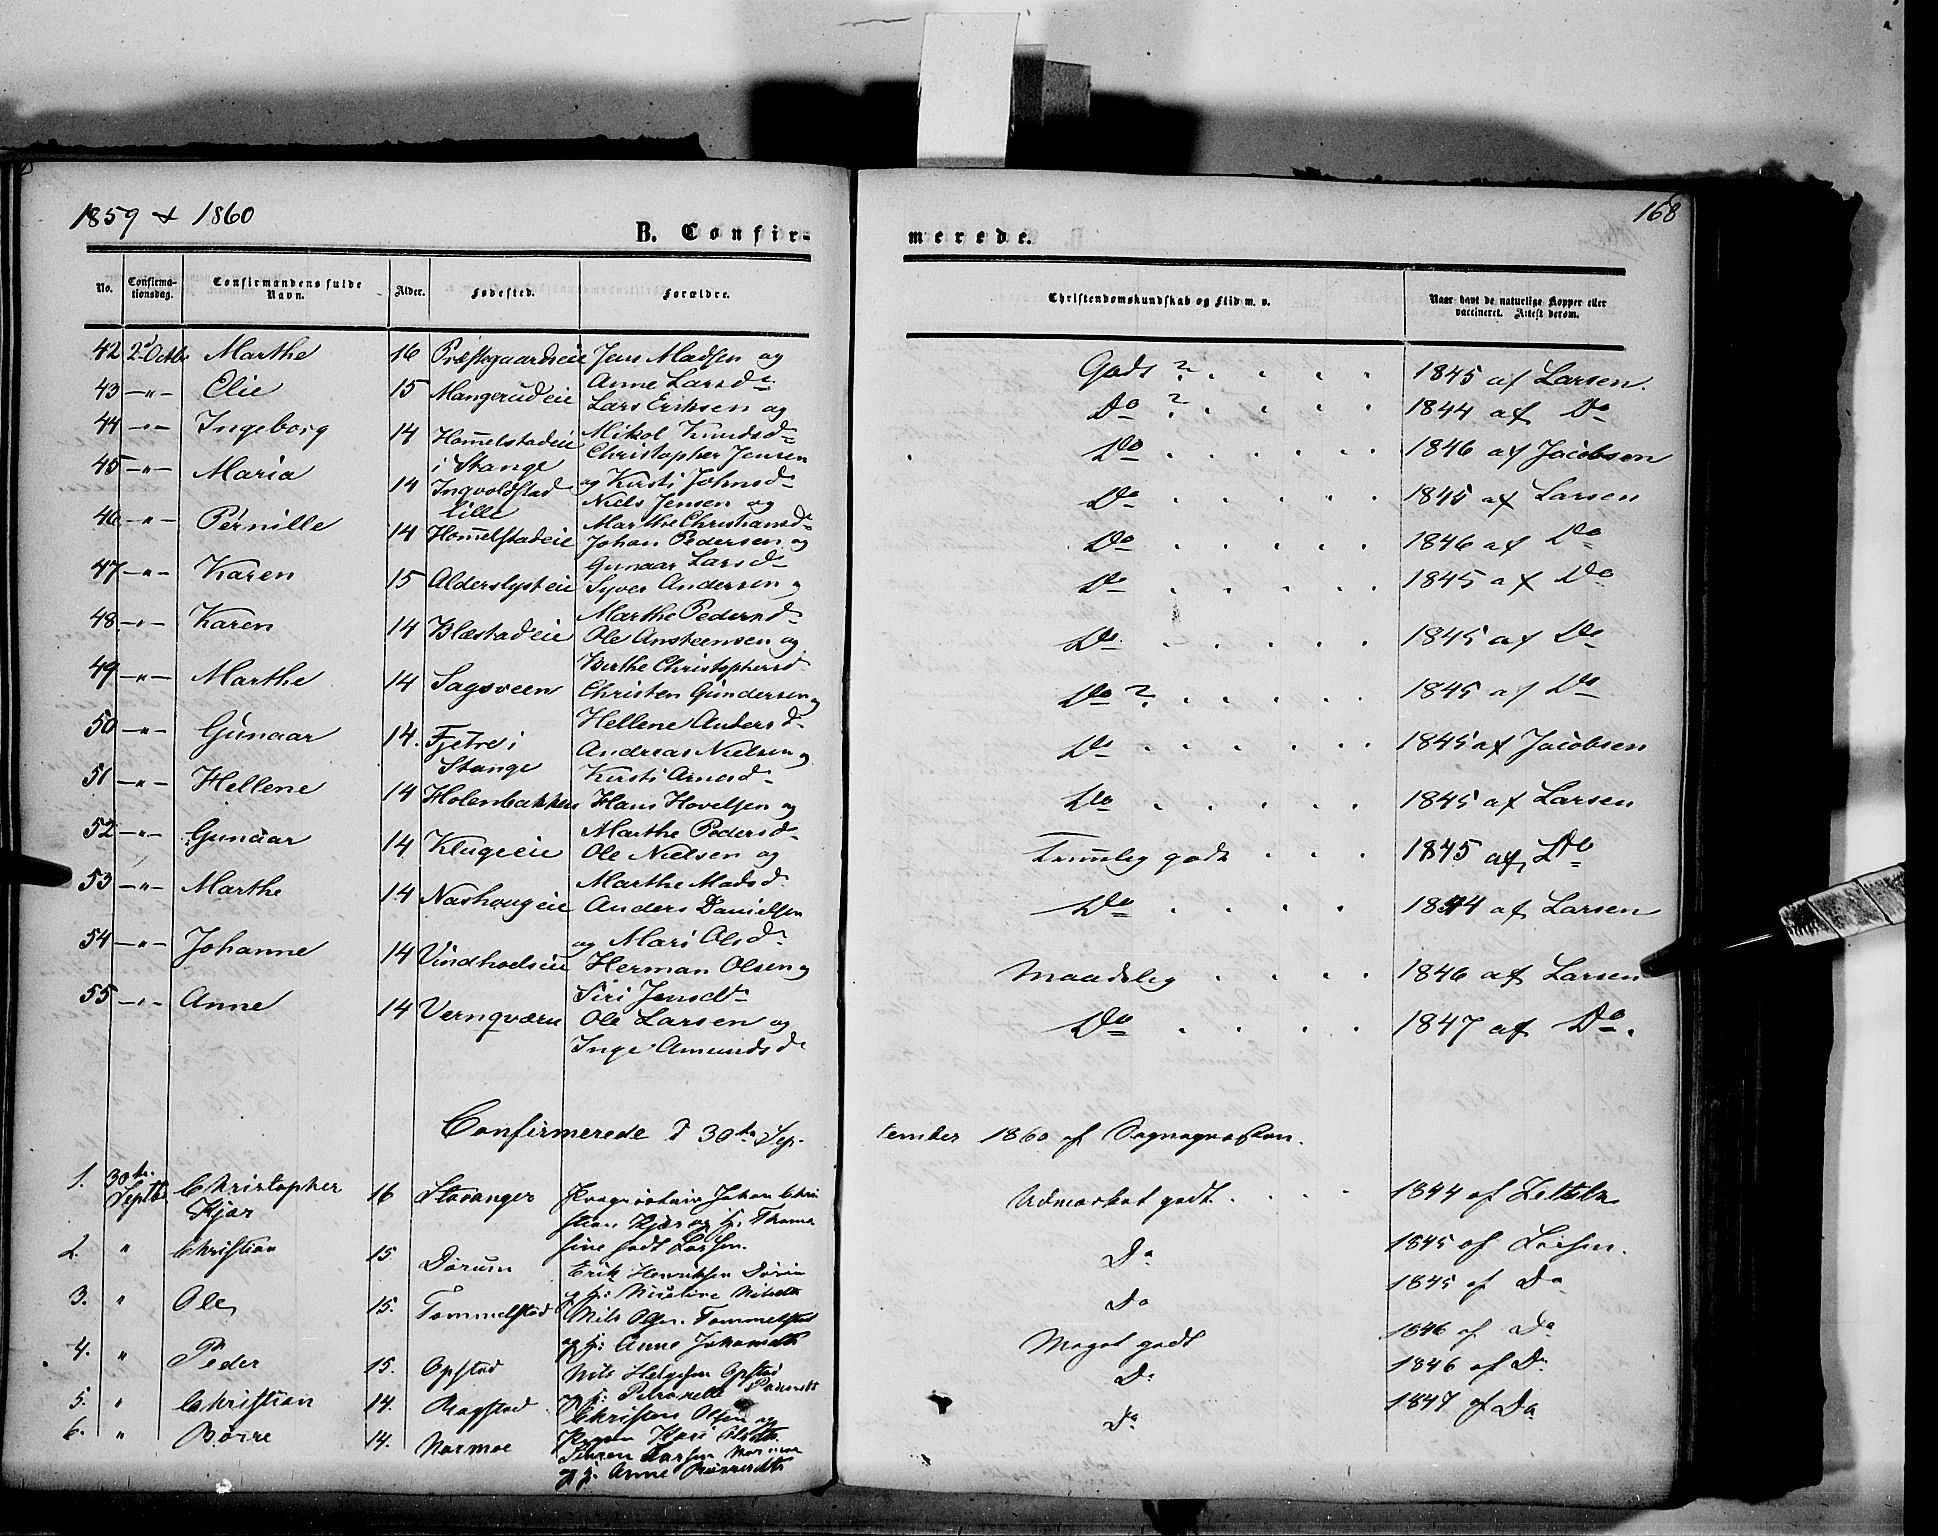 1859 & 1860
168
B. Confirmerede.
No. Confirmationsdag. Confirmandens fulde Navn. Alder. Fødested. Forældre. Christendomskundskab og Flid m. v. Naar havt de naturlige Kopper eller vaccineret. Attest derom.
42 2d Octbr Marthe 16 Præstegaardseie Jens Madsen og Anne Larsdr Godt ? 1845 af Larsen.
43 —"— Elie 15 Mangerudeie Lars Eriksen og Mikol Knudsdr Do ? 1844 af Do
44 —"— Ingeborg 14 Hommelstadeie i Stange Christopher Jensen og Kirsti Johnsdr Do 1846 af Jacobsen
45 —"— Maria 14 Ingvoldstad lille Niels Jensen og Marthe Christiansdr Do 1845 af Larsen
46 —"— Pernille 14 Hommelstadeie Johan Pedersen og Gunaar Larsdr Do 1846 af Do
47 —"— Karen 15 Alderslysteie Syver Andersen og Marthe Pedersdr Do 1845 af Do
48 —"— Karen 14 Blæstadeie Ole Ansteensen og Birthe Christophersd Do 1845 af Do
49 —"— Marthe 14 Sagsveen Christen Gundersen og Hellene Andersd. Do ? 1845 af Do
50 —"— Gunaar 14. Fjetre i Stange Andreas Nielsen og Kirsti Arnesd. Do 1845 af Jacobsen
51 —"— Hellene 14 Holenbakken Hans Hovelsen og Marthe Pedersd. Do 1845 af Larsen
52 —"— Gunaar 14 Klugeeie Ole Nielsen og Marthe Madsd. Temmelig godt 1845 af Do
53 —"— Marthe 14 Nashougeie Anders Danielsen og Mari Olsdr Do 1844 af Larsen
54 —"— Johanne 14 Herman Olsen og Siri Jensdtr Maadelig 1846 af Larsen
55 —"— Anne 14 Vernqværn Ole Larsen og Inge Amundsdr Do 1847 af Do.
Confirmerede d 30te September 1860 af Sognepræsten.
1. 30te Septbr Christopher Kjær 16 Stavanger Johan Christian Kjær og H: Thomasine født Larsen. Udmærket godt. 1844 af
2. " Christian 15 Dørum Erik Henriksen Dørum og H: Nilsdtr Do 1845 af Larsen.
3. " Ole 15. Tommelstad Nils Olsen Tommelstad og H: Anne Johannesdtr Do 1845 af Do
4. " Peder 15. Opstad Nils Helgesen Opstad og H: Petronelle Meget godt 1846 af Do
5. " Christian 14. Rogstad Christen Olsen og Konen Kari Olsdtr. Do 1846 af Do
6. " Børre 14. Normoe Larsen Normoe og H: Anne Do 1847 af Do